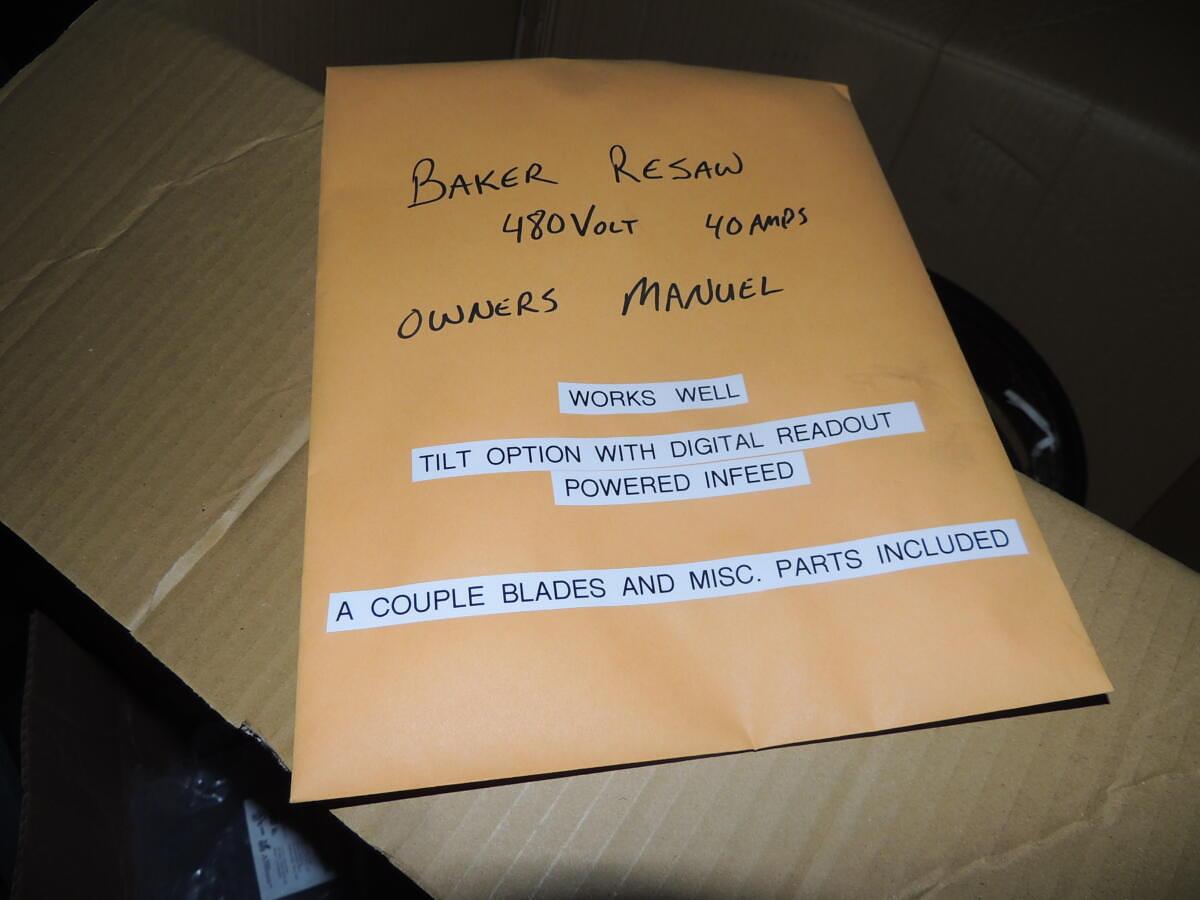 BAKER RESAW
480VOLT 40 AMPS
OWNERS MANUEL
WORKS WELL
TILT OPTION WITH DIGITAL READOUT
POWERED INFEED
A COUPLE BLADES AND MISC. PARTS INCLUDED